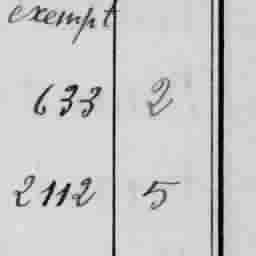 exempt
633 2
2112 5